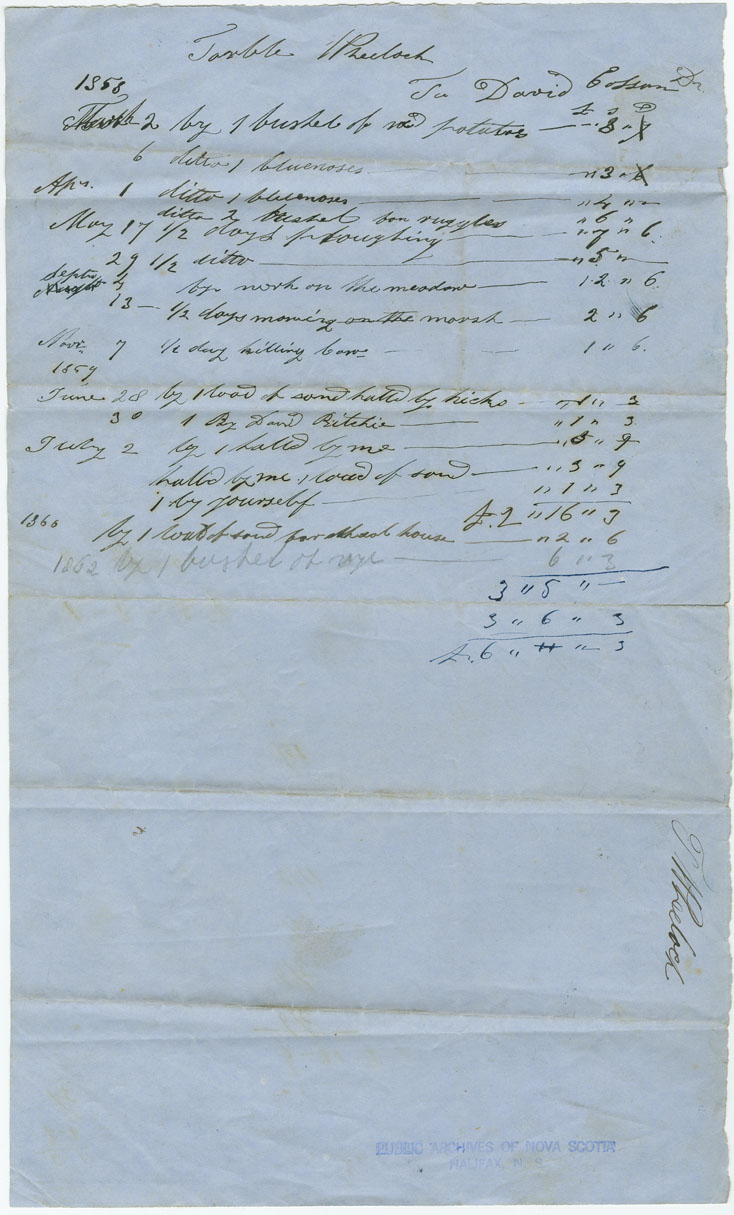 Tarble Wheelock
1858 To David Cossan Dr
£ s D
March 2 by 1 bushel of red potatoes — 3 "
6 ditto 1 bluenoses " 3 "
Apr. 1 ditto 1 bluenoses " 4 " —
ditto 2 bushel von ruggles " 6 "
May 17 1/2 days ploughing " 7 " 6
29 1/2 ditto " 5 " —
Septr 7 by work on the meadow — 12 " 6
13 — 1/2 days mowing on the marsh — 2 " 6
Novr 7 1/2 day killing Cow 1 " 6
1859
June 28 by 1 load of sand halld by hicks " 1 " 3
30 1 By David Ritchie " 1 " 3
July 2 by 1 halld by me " 3 " 9
halld by me 1 load of sand " 3 " 9
1 by yourself " 1 " 3
£ 2 " 16 " 3
1860 by 1 load of sand for house " 2 " 6
1862 by 1 bushel of rye 6 " 3
3 " 5 " —
3 " 6 " 3
£ 6 " 11 " 3
T Wheelock
PUBLIC ARCHIVES OF NOVA SCOTIA
HALIFAX, N. S.